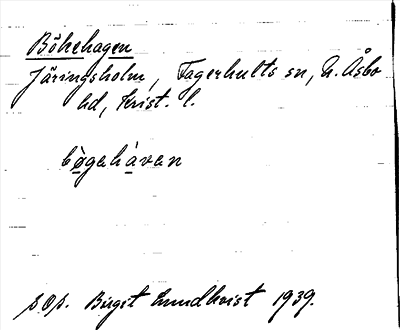 Bökehagen
Järingsholm, Fagerhults sn, N. Åsbo
hd, Krist. l.
bø̀gahàvan
pop. Birgit Lundkvist 1939.